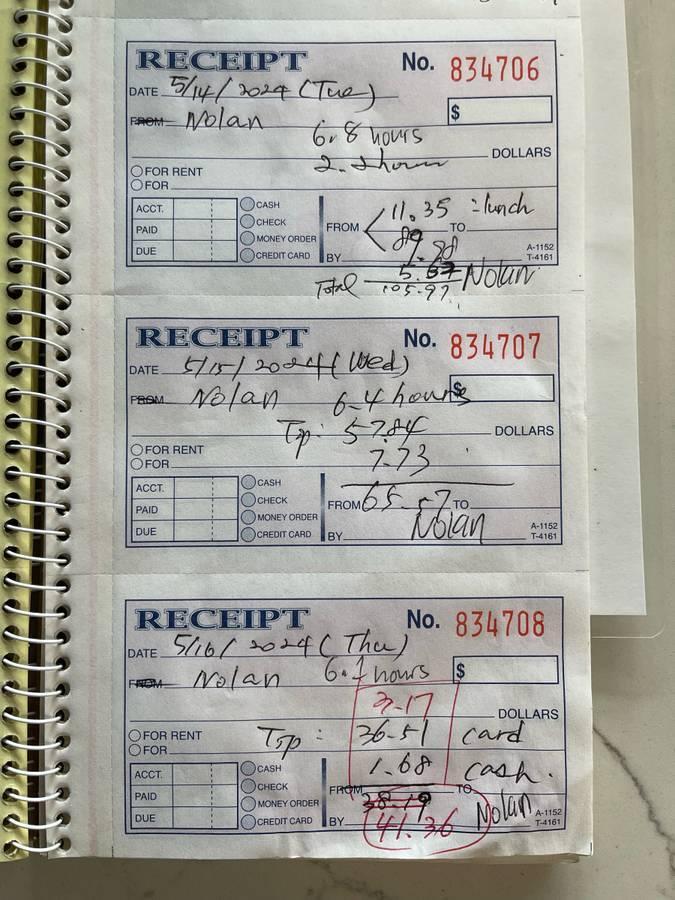 RECEIPT No. 834706
DATE 5/14/2024 (Tue)
FROM Nolan 6.8 hours
2.2 hours
DOLLARS
FOR RENT
FOR
ACCT. CASH
CHECK
FROM 11.35 = lunch TO
PAID MONEY ORDER
89.98
DUE CREDIT CARD BY A-1152
T-4161
5.67 Nolan
Total 105.97
RECEIPT No. 834707
DATE 5/15/2024 (Wed)
FROM Nolan 6.4 hours $
Tip: 57.84 DOLLARS
FOR RENT
7.73
FOR
ACCT. CASH
CHECK
PAID FROM 65.57 TO
MONEY ORDER Nolan
DUE CREDIT CARD BY A-1152
T-4161
RECEIPT No. 834708
DATE 5/16/2024 (Thu)
FROM Nolan 6.1 hours $
3.17 DOLLARS
FOR RENT Tip: 36.51 card
FOR
ACCT. CASH 1.68 cash.
CHECK FROM TO
PAID MONEY ORDER 38.19 Nolan
DUE CREDIT CARD BY 41.36 A-1152
T-4161